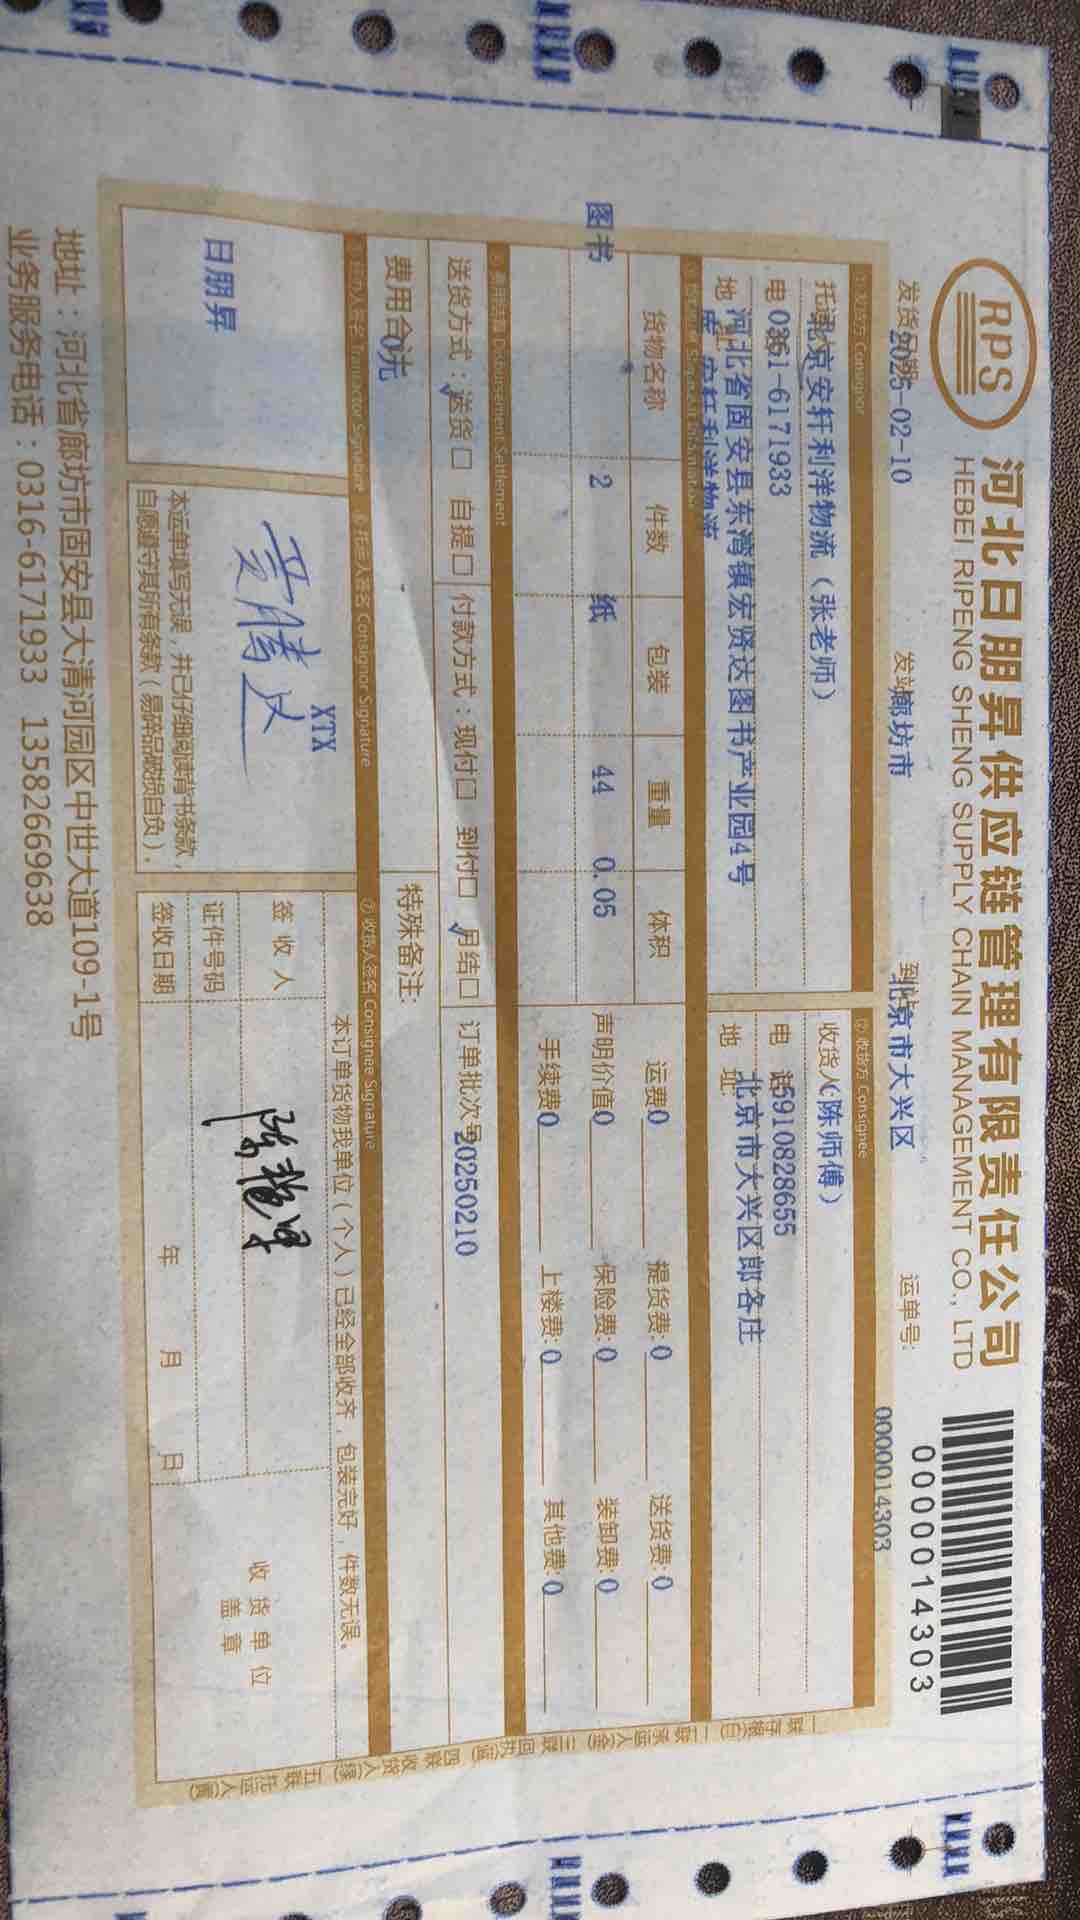 RPS
河北日朋昇供应链管理有限责任公司
HEBEI RIPENG SHENG SUPPLY CHAIN MANAGEMENT CO., LTD
0000014303
发货日期:2025-02-10 发站:廊坊市 到站:北京市大兴区 运单号: 0000014303
①发货方 Consignor ②收货方 Consignee
北京安轩利洋物流（张老师） 收货人:（陈师傅）
电 0361-6171933 电 话 5910828655
地 址 河北省固安县东湾镇宏贤达图书产业园4号 地 址 北京市大兴区郎各庄
库 安轩利洋物流
货物名称 件数 包装 重量 体积 运费0 提货费:0 送货费:0
图书 2 纸 44 0.05 声明价值0 保险费:0 装卸费:0
手续费0 上楼费:0 其他费:0
Disbursement Settlement
送货方式：送货☑ 自提□ 付款方式：现付□ 到付□ 月结☑ 订单批次号20250210
费用合计:0元 特殊备注:
经办人签名 Transactor Signature 托运人签名 Consignor Signature ⑦收货人签名 Consignee Signature
日朋昇 XTX
本运单填写无误，并已仔细阅读背书条款，
自愿遵守其所有条款（易碎品破损自负）。
本订单货物我单位（个人）已经全部收齐，包装完好，件数无误。
签 收 人
证件号码
签收日期 年 月 日
收 货 单 位
盖 章
一联存根(白) 二联承运人(金) 三联回执(蓝) 四联收货人(绿) 五联托运人(黄)
地址：河北省廊坊市固安县大清河园区中世大道109-1号
业务服务电话：0316-6171933 13582669638